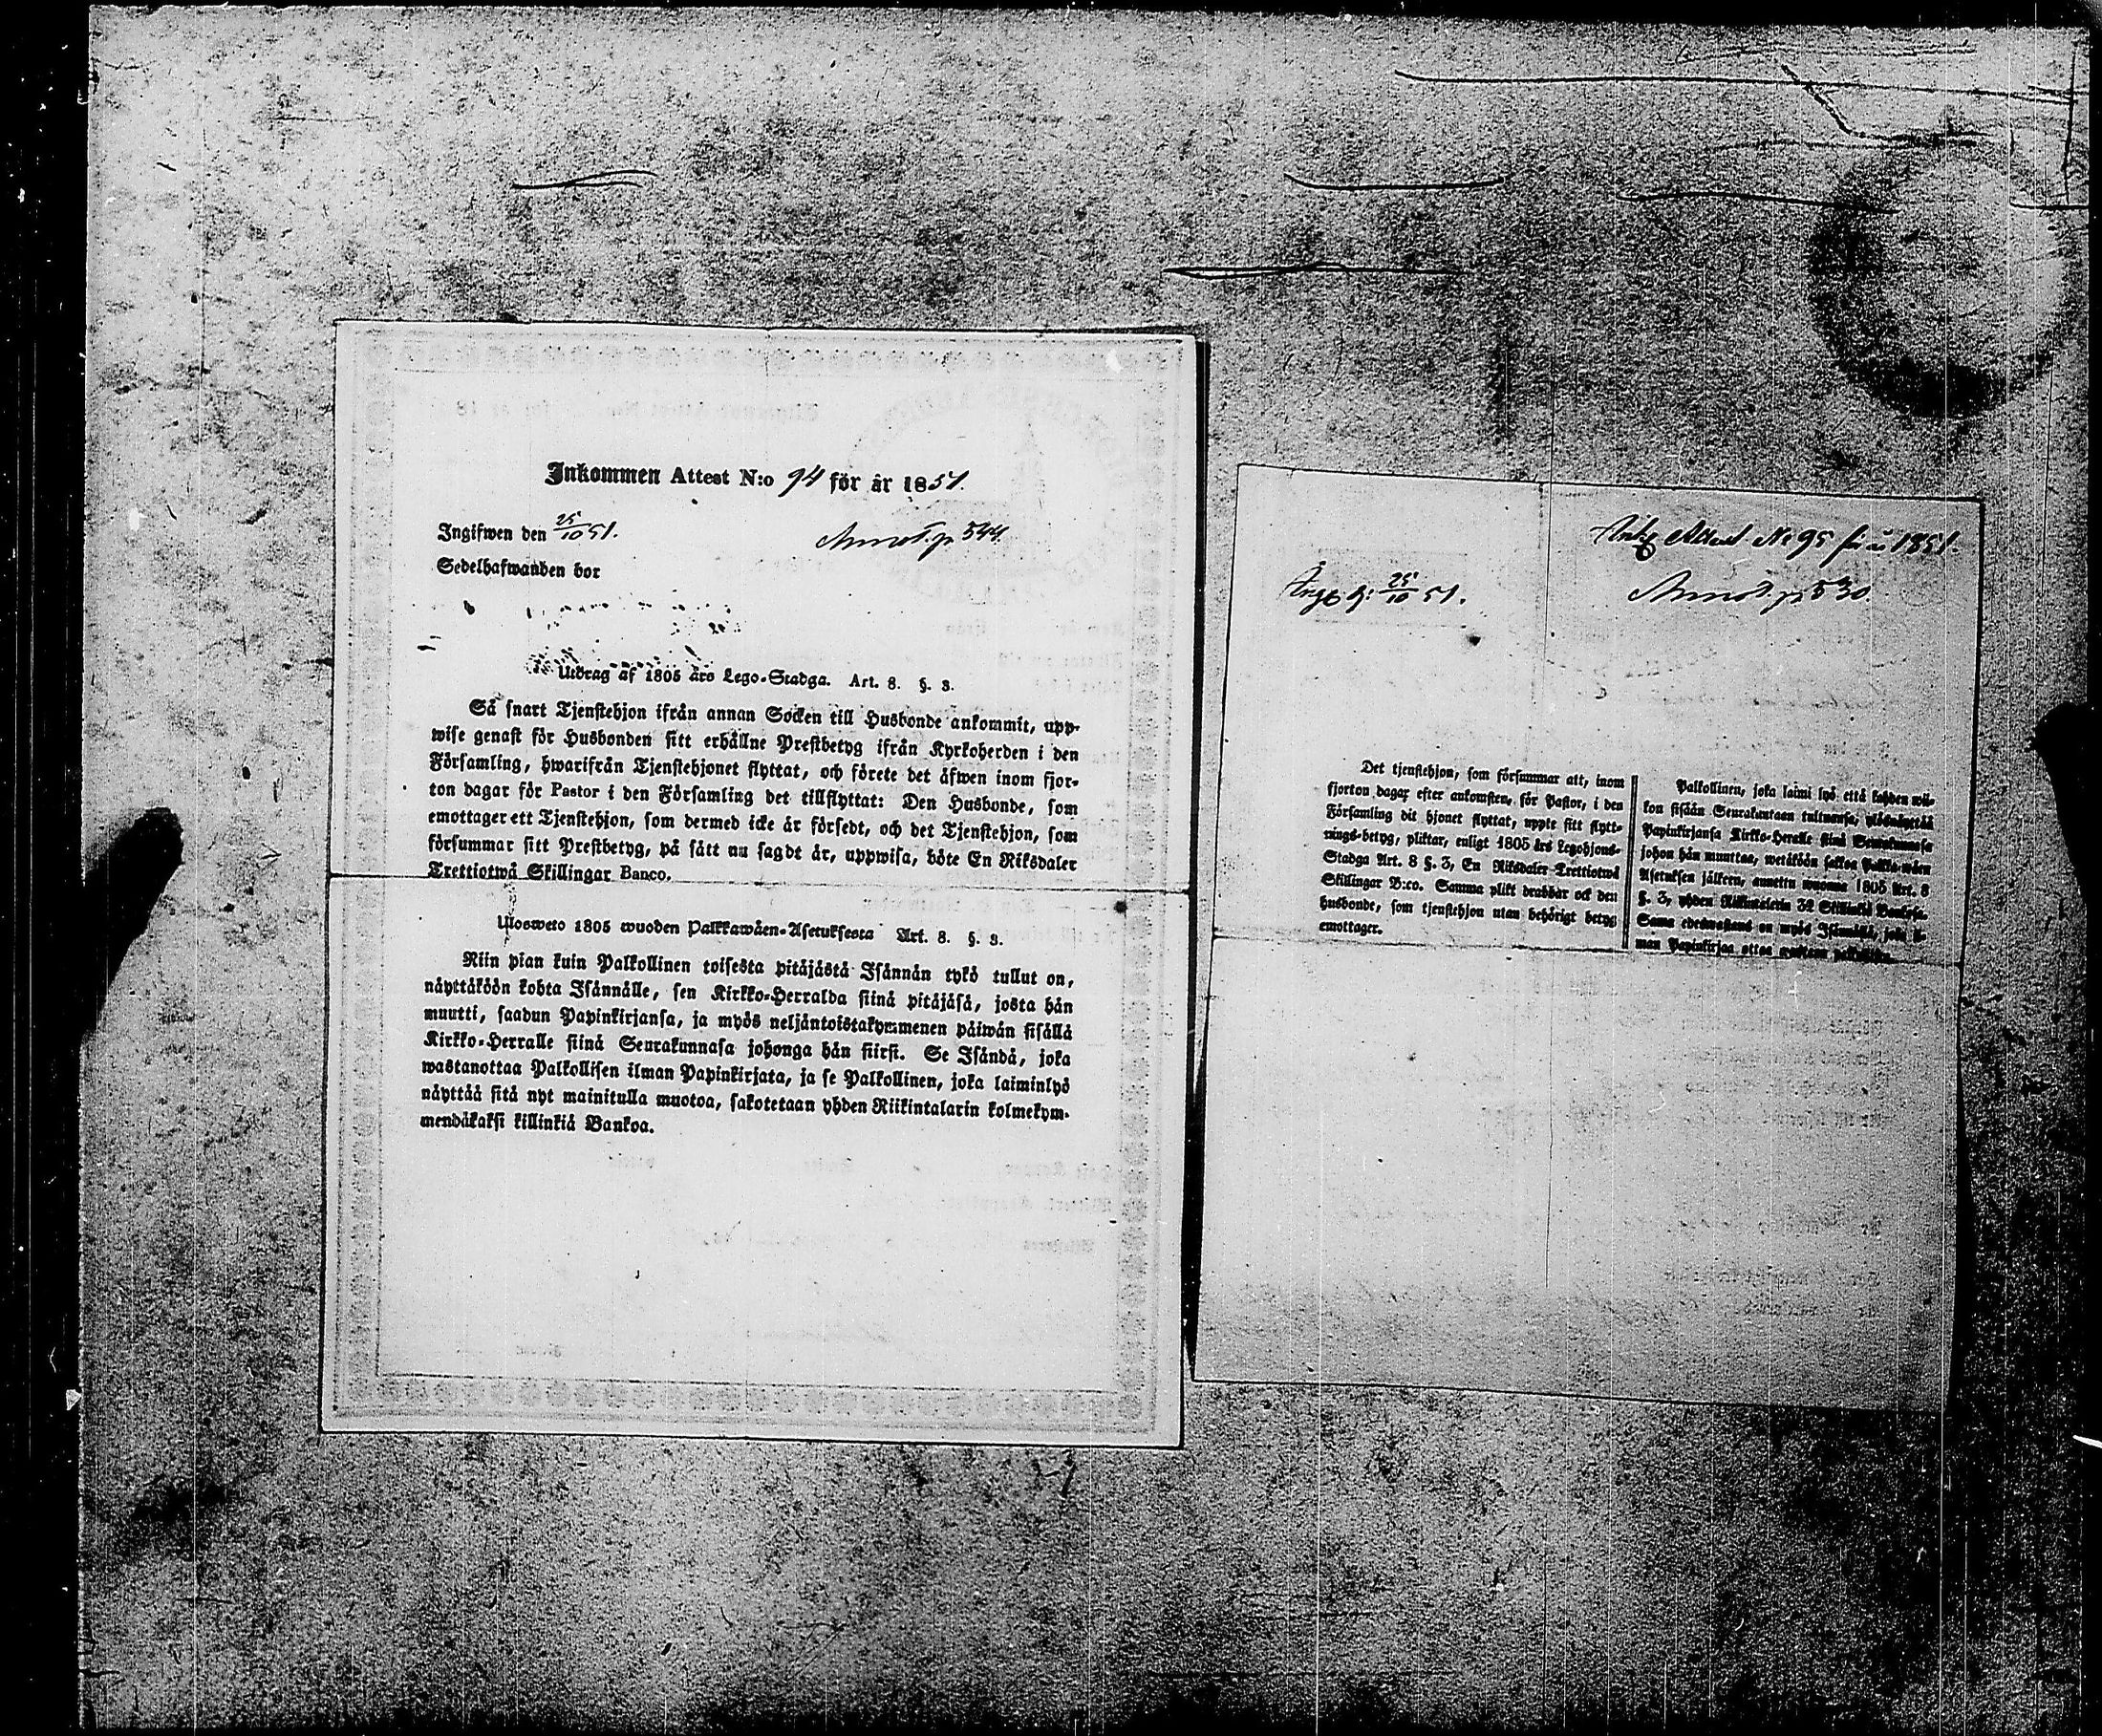 Inkommen Attest N:o 94 för år 1851.
Ingifwen den 25/10 51.
Annot. p. 544.
Sedelhafwanden bor
Utdrag af 1805 års Lego-Stadga. Art. 8. §. 3.
Så snart Tjenstehjon ifrån annan Socken till Husbonde ankommit, upp-
wise genast för Husbonden sitt erhållne Prestbetyg ifrån Kyrkoherden i den
Församling, hwarifrån Tjenstehjonet flyttat, och förete det äfwen inom fjor-
ton dagar för Pastor i den Församling det tillflyttat: Den Husbonde, som
emottager ett Tjenstehjon, som dermed icke är försedt, och det Tjenstehjon, som
försummar sitt Prestbetyg, på sätt nu sagdt är, uppwisa, böte En Riksdaler
Trettiotwå Skillingar Banco.
Ulosweto 1805 wuoden Palkkawäen-Asetuksesta Art. 8. §. 3.
Niin pian kuin Palkollinen toisesta pitäjästä Isännän tykö tullut on,
näyttäköön kohta Isännälle, sen Kirkko-Herralda siinä pitäjäsä, josta hän
muutti, saadun Papinkirjansa, ja myös neljäntoistakymmenen päiwän sisällä
Kirkko-Herralle siinä Seurakunnasa johonga hän siirsi. Se Isändä, joka
wastanottaa Palkollisen ilman Papinkirjata, ja se Palkollinen, joka laiminlyö
näyttää sitä nyt mainitulla muotoa, sakotetaan yhden Riikintalarin kolmekym-
mendäkaksi killinkiä Bankoa.
Ink. Attest No 95 för år 1851.
Ing. d. 25/10 51.
Annot. p. 530.
Det tjenstehjon, som försummar att, inom
fjorton dagar efter ankomsten, för Pastor, i den
Församling dit hjonet flyttat, uppte sitt flytt-
nings-betyg, pliktar, enligt 1805 års Legohjons-
Stadga Art. 8 §. 3, En Riksdaler Trettiotwå
Skillingar B:co. Samma plikt drabbar ock den
husbonde, som tjenstehjon utan behörigt betyg
emottager.
Palkollinen, joka laimi lyö että kahden wii-
kon sisään Seurakuntaan tultuansa, ylösnäyttää
Papinkirjansa Kirkko-Herralle siinä Seurakunnasa
johon hän muuttaa, wetäköön sakkoa Palkka-wäen
Asetuksen jälkeen, annettu wuonna 1805 Art. 8
§. 3, yhden Riikintalerin 32 Skillinkiä Bankosa.
Sama edeswastaus on myös Isännällä, joka il-
man Papinkirjaa ottaa palkollisen.